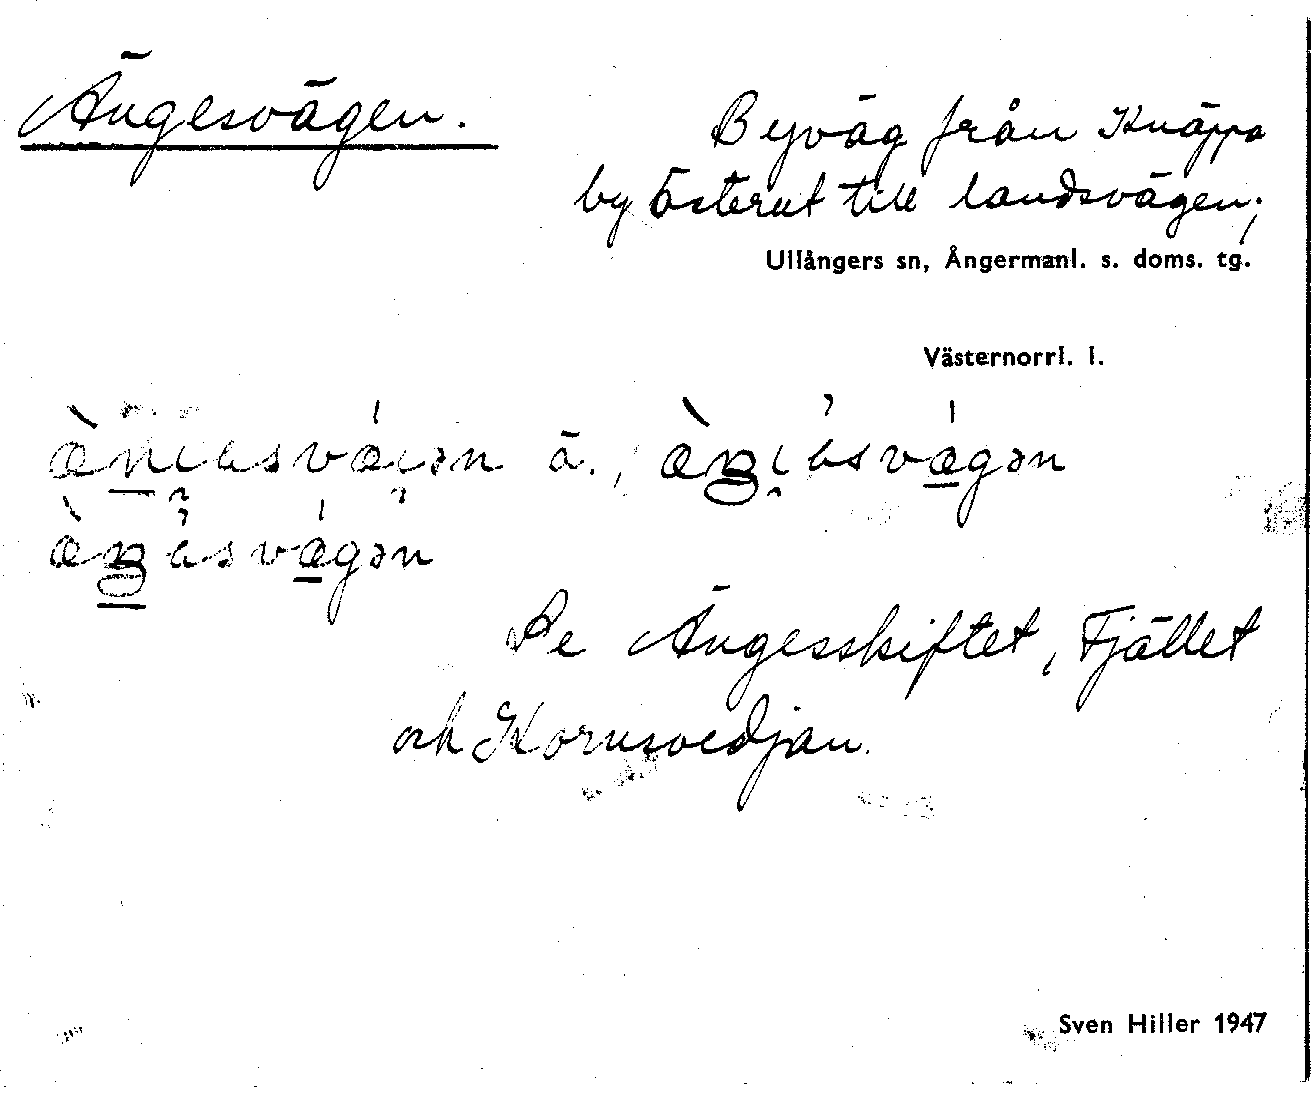 Ängesvägen.
Byväg från Knäppa
by österut till landsvägen;
Ullångers sn, Ångermanl. s. doms. tg.
Västernorrl. l.
ä.,
Se Ängesskiftet, Fjället
och Kornsvedjan.
Sven Hiller 1947